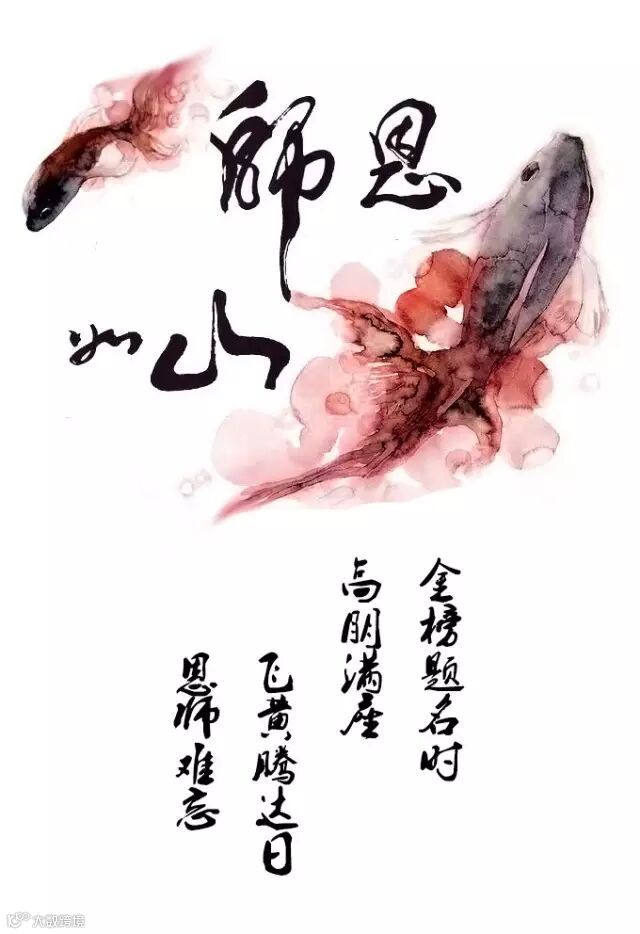 师恩
如山
金榜题名时
高朋满座
飞黄腾达日
恩师难忘
大数跨境